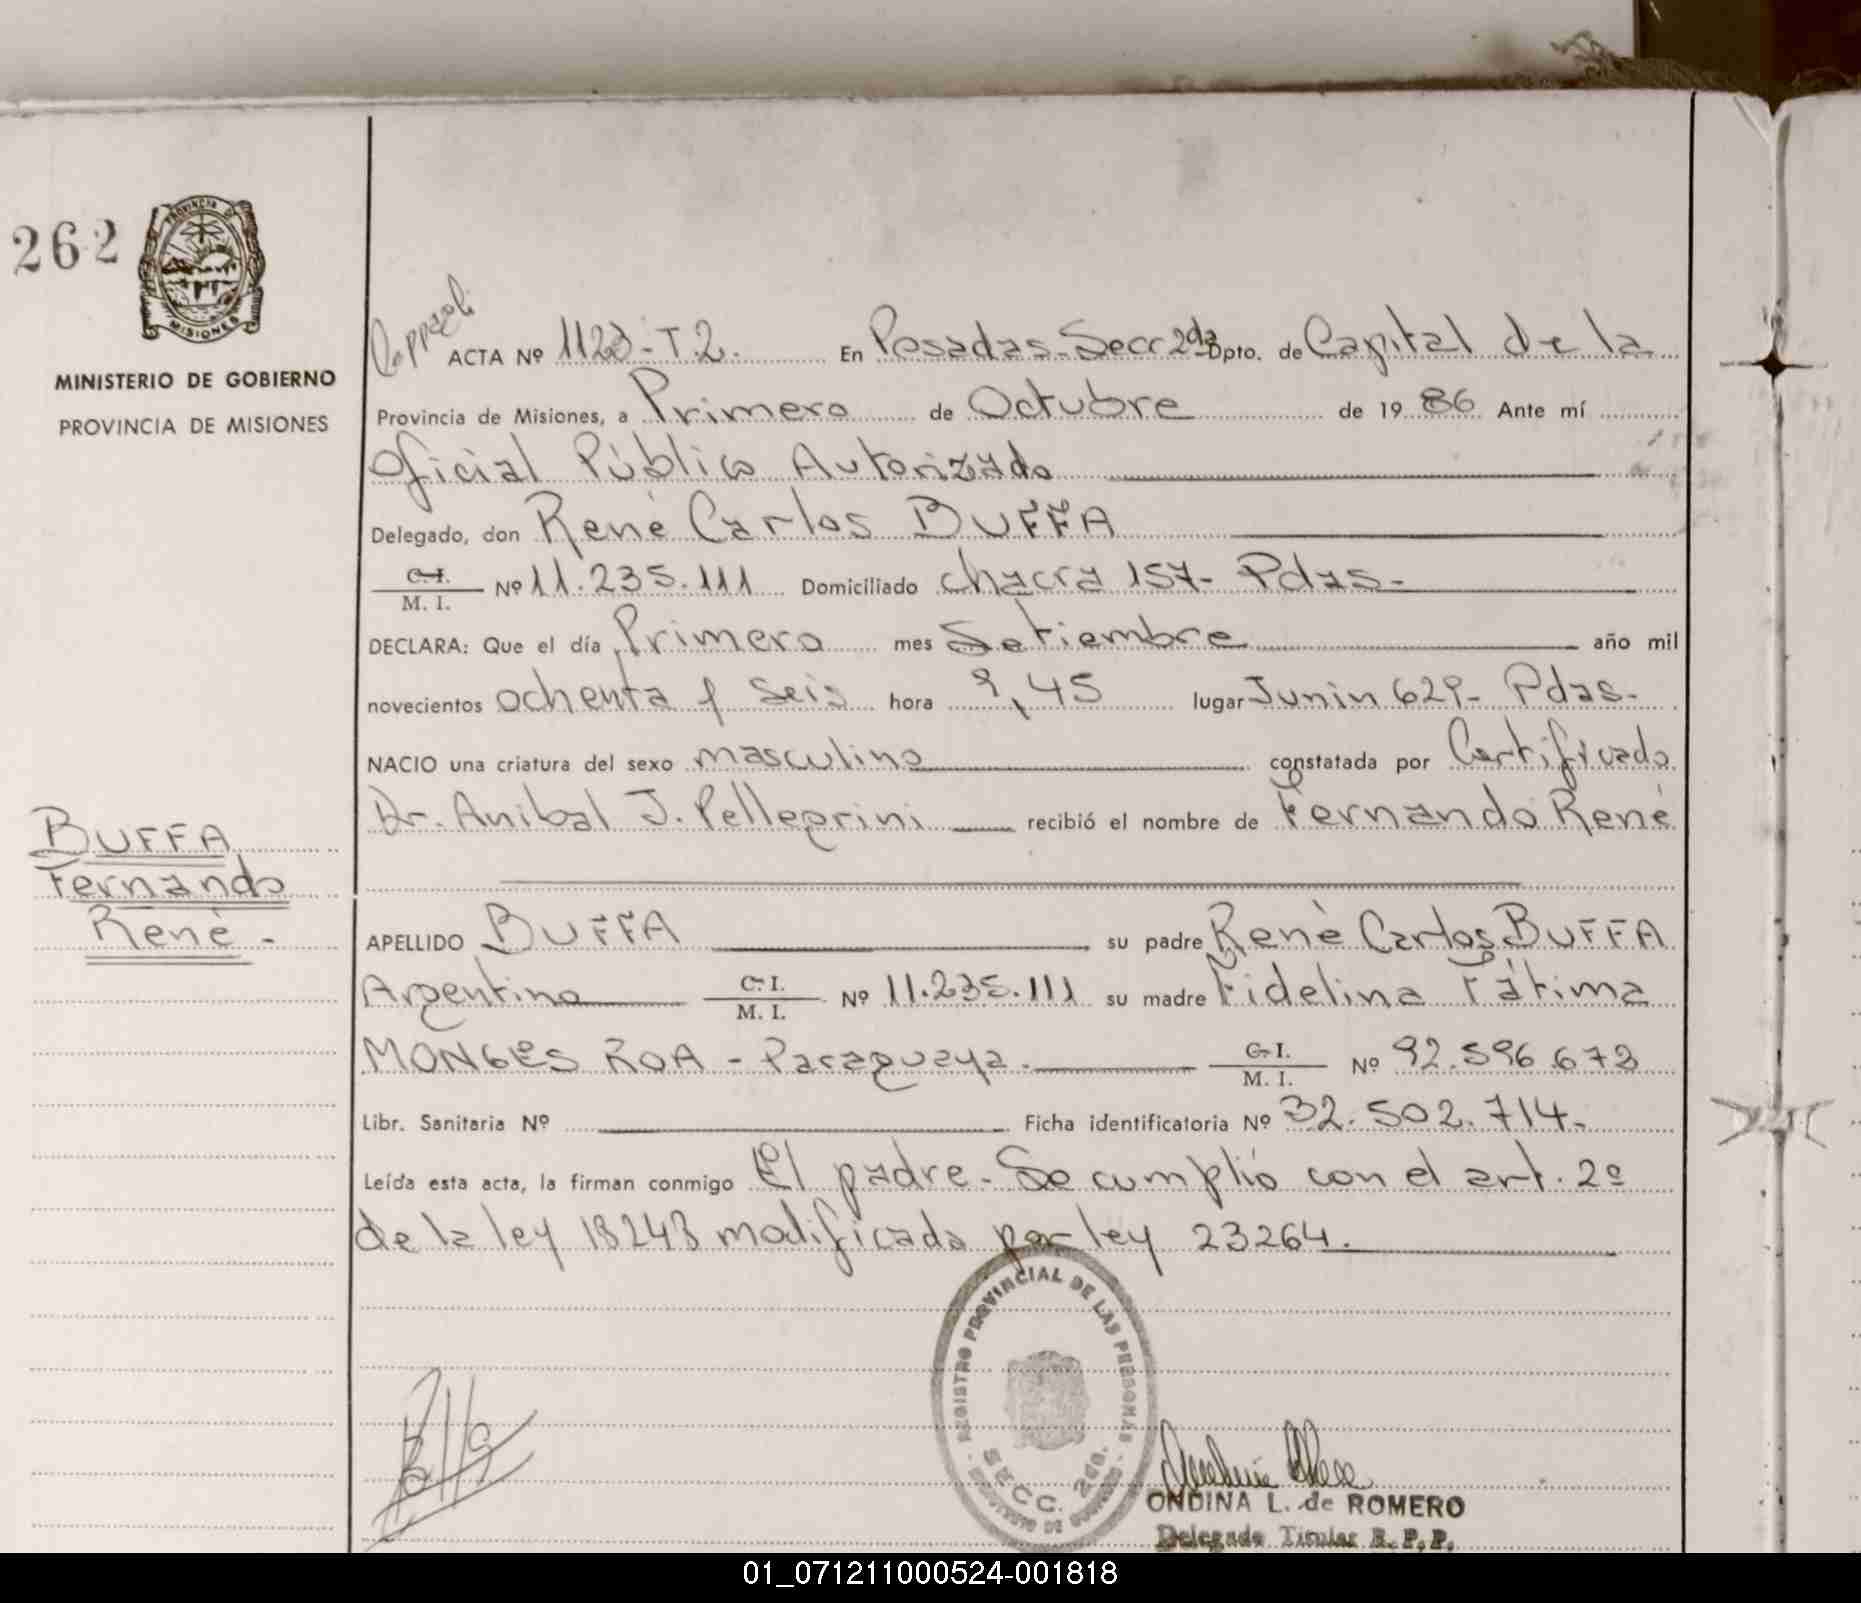 262
PROVINCIA DE
MISIONES
MINISTERIO DE GOBIERNO
PROVINCIA DE MISIONES
BUFFA
Fernando
René -
ACTA Nº 1123-T.2. En Posadas-Secc 2da Dpto. de Capital de la
Provincia de Misiones, a Primero de Octubre de 1986 Ante mí
Oficial Público Autorizado
Delegado, don René Carlos BUFFA
C. I. / M. I. Nº 11.235.111 Domiciliado chacra 157- Pdas-
DECLARA: Que el día Primero mes Setiembre año mil
novecientos ochenta y seis hora 9,45 lugar Junin 629- Pdas-
NACIO una criatura del sexo masculino constatada por Certificado
Dr. Anibal J. Pellegrini recibió el nombre de Fernando René
APELLIDO BUFFA su padre René Carlos BUFFA
Argentino C. I. / M. I. Nº 11.235.111 su madre Fidelina Fátima
MONGES ROA - Paraguaya. C. I. / M. I. Nº 92.596.673
Libr. Sanitaria Nº Ficha identificatoria Nº 32.502.714-
Leída esta acta, la firman conmigo El padre- Se cumplió con el art. 2º
de la ley 18248 modificada por ley 23264.
REGISTRO PROVINCIAL DE LAS PERSONAS
SECC. 2da.
ONDINA L. de ROMERO
Delegado Titular R. P. P.
01_071211000524-001818